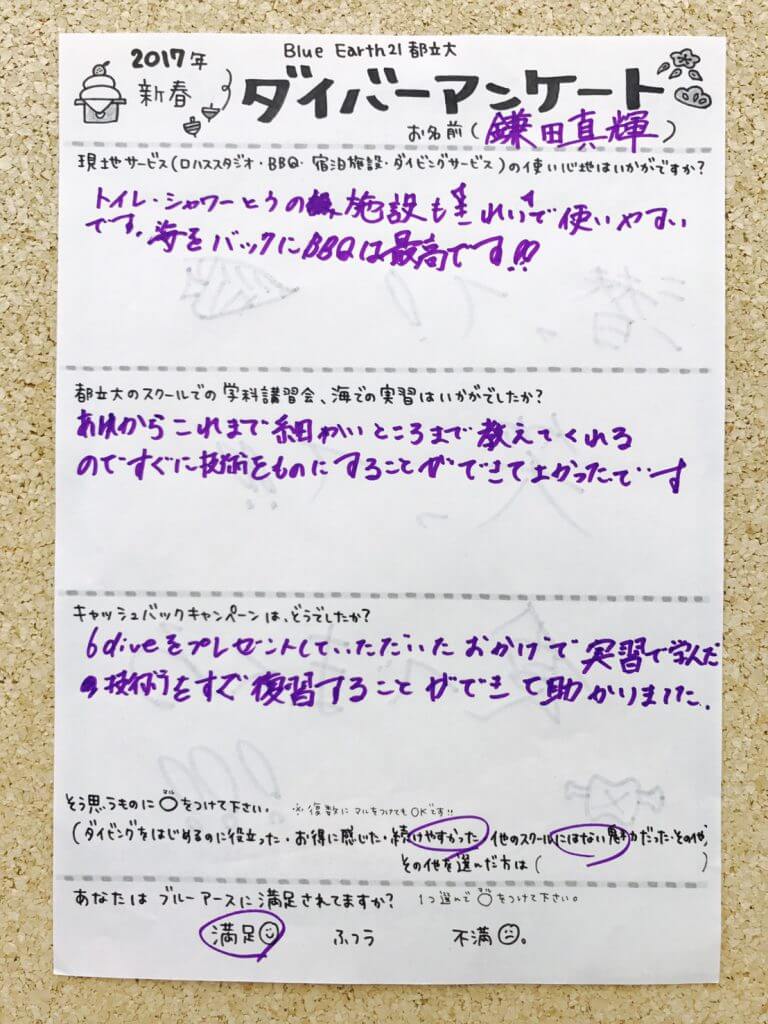 2017年
新春
Blue Earth21 都立大
ダイバーアンケート
お名前(鎌田真輝)
現地サービス(ロハススタジオ・BBQ・宿泊施設・ダイビングサービス)の使い心地はいかがですか?
トイレ・シャワーとうの施設もきれいで使いやすい
です。海をバックにBBQは最高です!!
都立大のスクールでの学科講習会、海での実習はいかがでしたか?
あれからこれまで細かいところまで教えてくれる
のですぐに技術をものにすることができてよかったです
キャッシュバックキャンペーンは、どうでしたか?
6diveをプレゼントしていただいたおかげで実習で学んだ
技術をすぐ復習することができて助かりました。
そう思うものに○をつけて下さい。 ※複数にマルをつけてもOKです!!
(ダイビングをはじめるのに役立った・お得に感じた・続けやすかった・他のスクールにはない魅力だった・その他
その他を選んだ方は( )
あなたはブルーアースに満足されてますか? 1つ選んで○をつけて下さい。
満足 ふつう 不満。